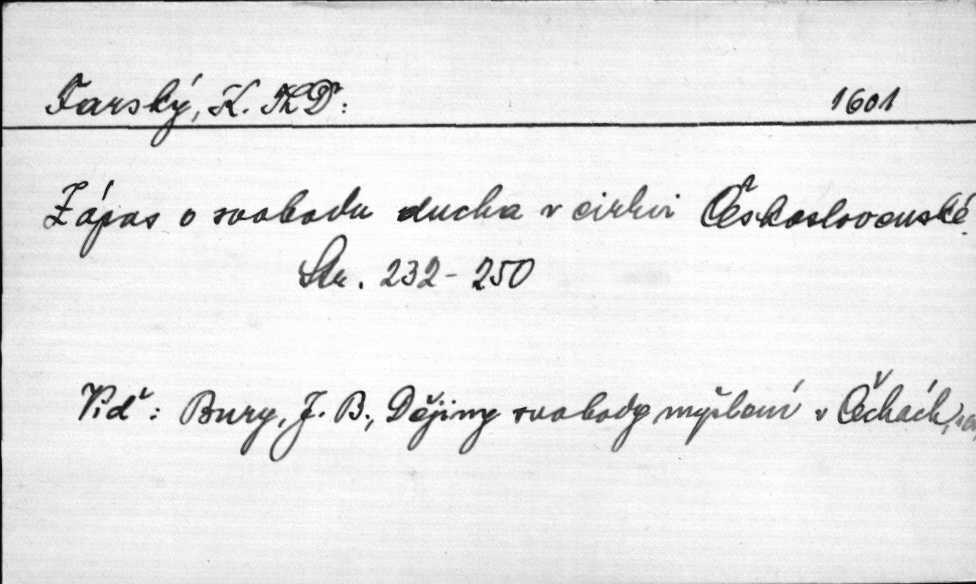 Farský, K. ThDr: 1601
Zápas o svobodu ducha v církvi Československé.
Str. 232-250
Viď: Bury, J. B., Dějiny svobody myšlení v Čechách,